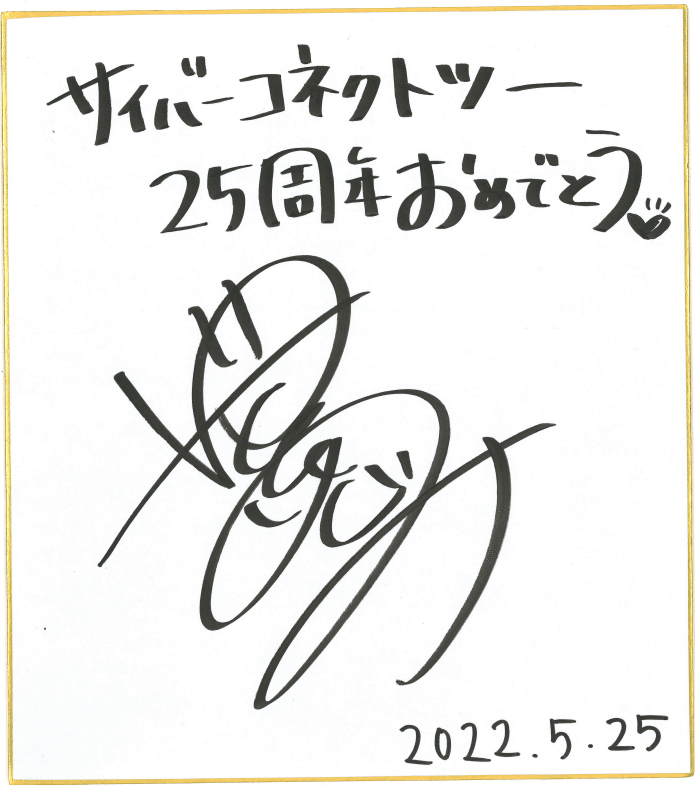 サイバーコネクトツー
25周年おめでとう♥
2022.5.25